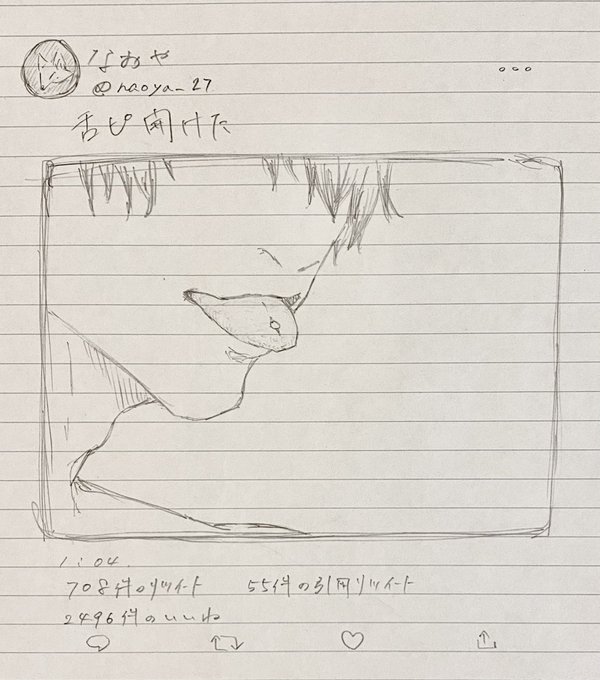 なおや
@naoya_27
舌ピ開けた
1:04
708件のリツイート 55件の引用リツイート
2496件のいいね